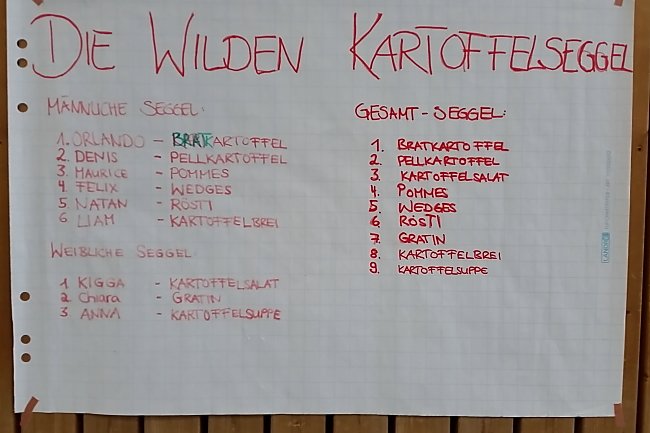 DIE WILDEN KARTOFFELSEGGEL
MÄNNLICHE SEGGEL:
1. ORLANDO - BRATKARTOFFEL
2. DENIS - PELLKARTOFFEL
3. MAURICE - POMMES
4. FELIX - WEDGES
5 NATAN - RÖSTI
6 LIAM - KARTOFFELBREI
WEIBLICHE SEGGEL
1 KIGGA - KARTOFFELSALAT
2. Chiara - GRATIN
3 ANNA - KARTOFFELSUPPE
GESAMT-SEGGEL:
1. BRATKARTOFFEL
2. PELLKARTOFFEL
3. KARTOFFELSALAT
4. POMMES
5. WEDGES
6. RÖSTI
7. GRATIN
8. KARTOFFELBREI
9. KARTOFFELSUPPE
LANDRÉ